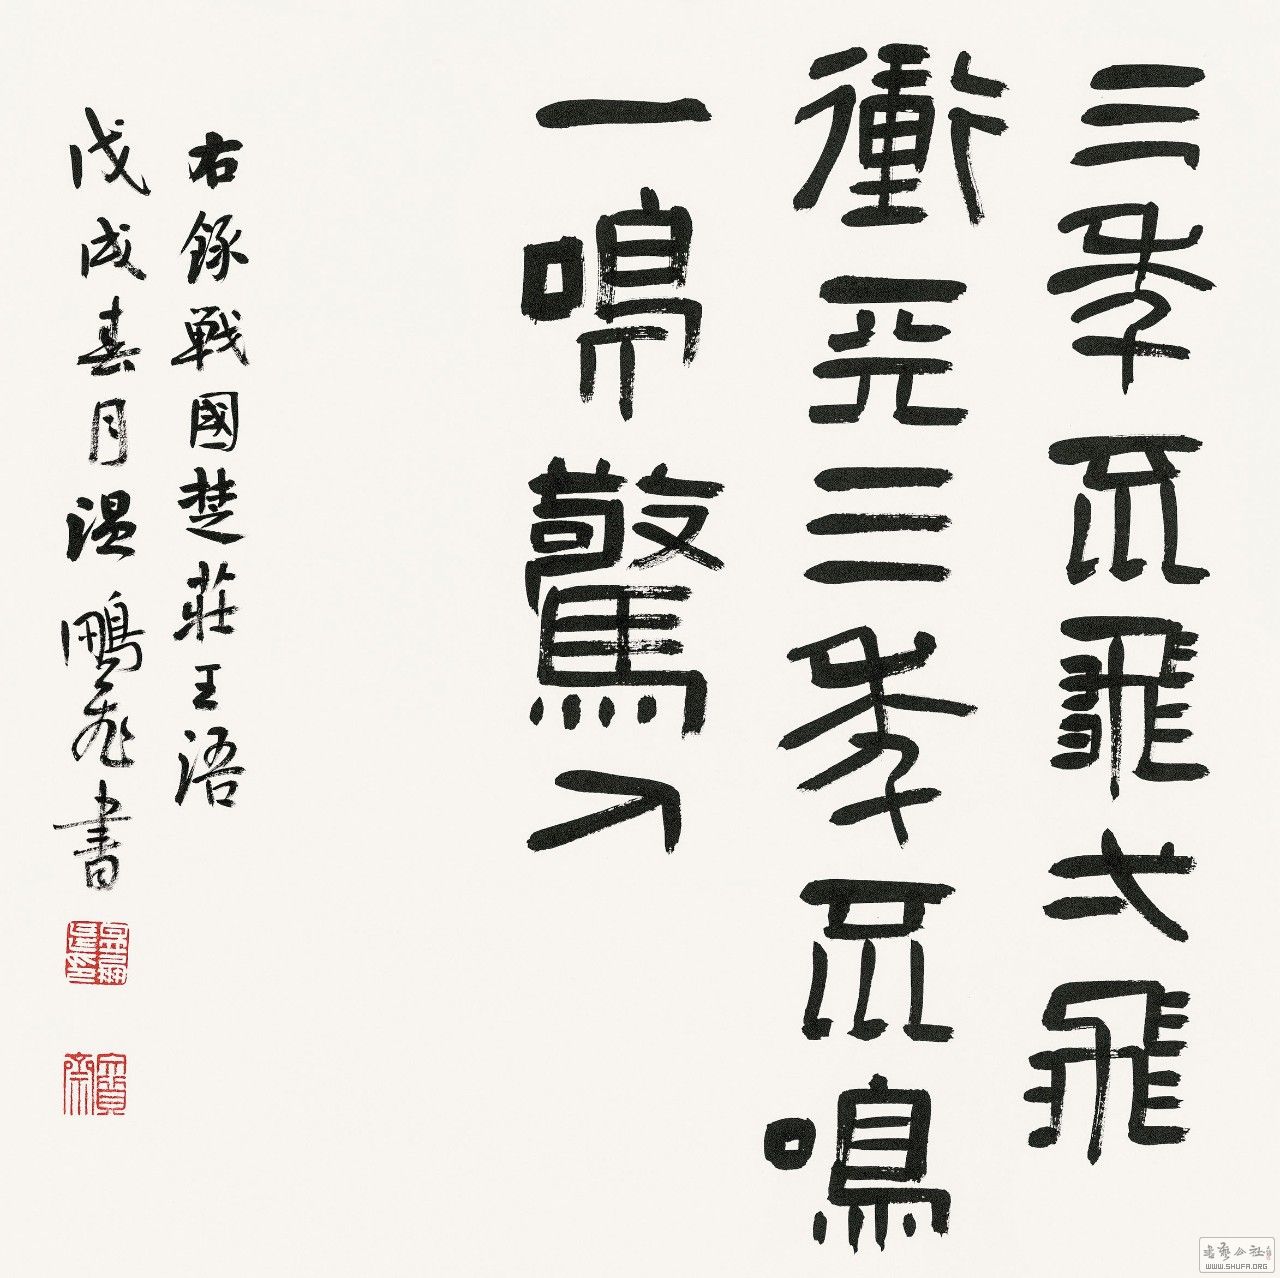 三年不飛弌飛
衝天三年不鳴
一鳴驚人
右錄戰國楚莊王語
戊戌春月温鵬飛書
书艺公社
WWW.SHUFA.ORG